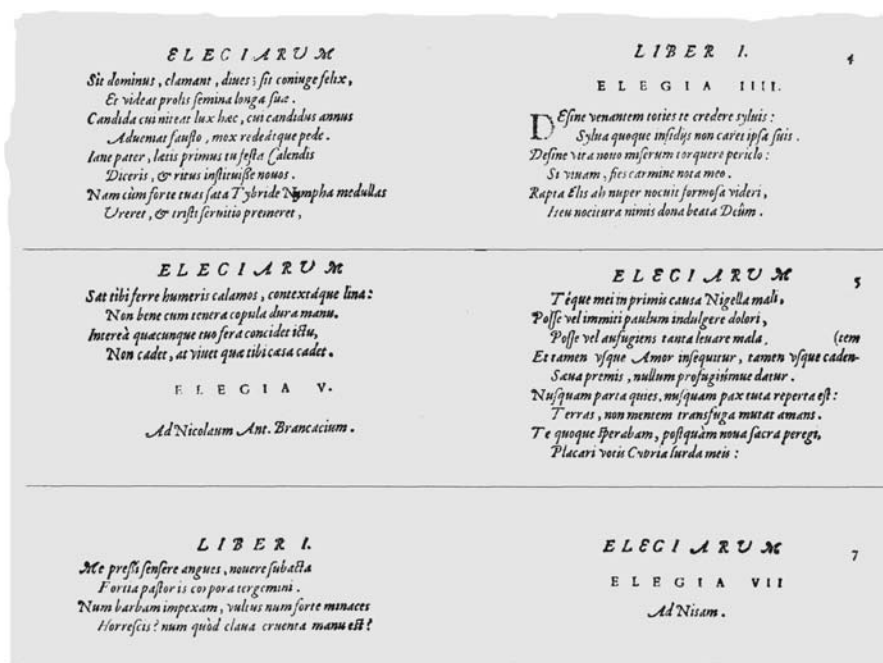 ELEGIARUM
Sit dominus, clamant, diues; sit coniuge felix,
Et videat prolis semina longa suæ.
Candida cui niteat lux hæc, cui candidus annus
Adueniat fausto, mox redeátque pede.
Iane pater, lætis primus tu festa Calendis
Diceris, & ritus instituisse nouos.
Nam cùm forte tuas sata Tybride Nympha medullas
Ureret, & tristi seruitio premeret,
LIBER I. 4
ELEGIA IIII.
DEsine venantem toties te credere syluis:
Sylua quoque insidijs non caret ipsa suis.
Desine vita nouo miserum torquere periclo:
Si viuam, fies carmine nota meo.
Rapta Elis ah nuper nocuit formosa videri,
Heu nocitura nimis dona beata Deûm.
ELEGIARUM
Sat tibi ferre humeris calamos, contextáque lina:
Non bene cum tenera copula dura manu.
Intereà quæcunque tuo fera concidet ictu,
Non cadet, at viuet quæ tibi cæsa cadet.
ELEGIA V.
Ad Nicolaum Ant. Brancacium.
ELEGIARUM 5
Téque mei in primis causa Nigella mali,
Posse vel immiti paulum indulgere dolori,
Posse vel aufugiens tanta leuare mala. (tem
Et tamen vsque Amor insequitur, tamen vsque caden-
Sæua premis, nullum profugiísmue datur.
Nusquam parta quies, nusquam pax tuta reperta est:
Terras, non mentem transfuga mutat amans.
Te quoque sperabam, postquàm noua sacra peregi,
Placari votis Cypria surda meis:
LIBER I.
Me pressi sensere angues, nouere subacta
Fortia pastoris corpora tergemini.
Num barbam impexam, vultus num forte minaces
Horrescis? num quòd claua cruenta manu est?
ELEGIARUM 7
ELEGIA VII
Ad Nisam.